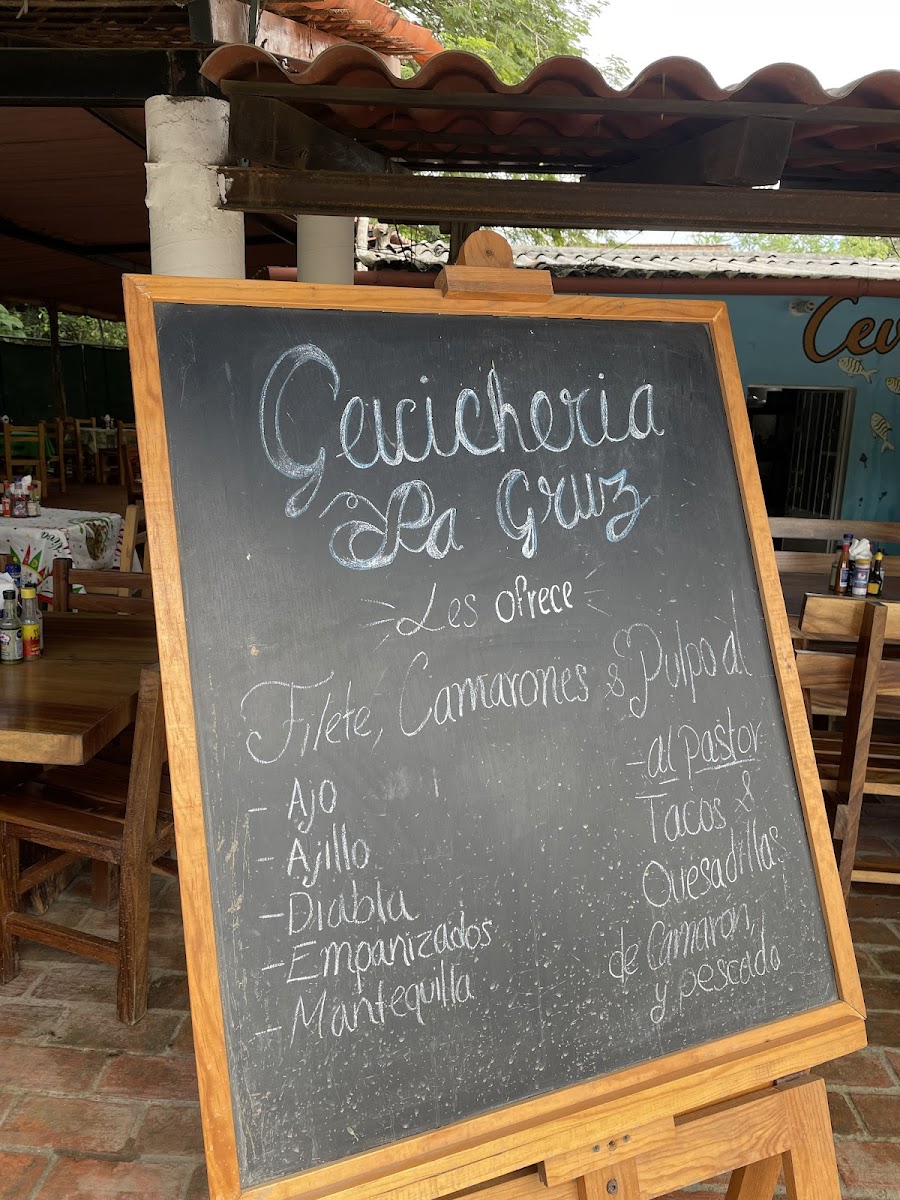 Cevicheria
La Cruz
Les ofrece
Filete, Camarones & Pulpo al
- Ajo
- Ajillo
- Diabla
- Empanizados
- Mantequilla
- al pastor
Tacos &
Quesadillas
de Camaron,
y pescado
Cev